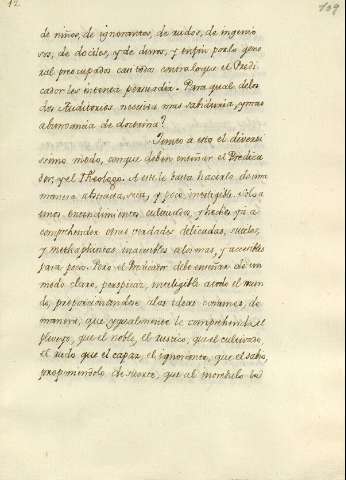 12 109
de niños, de ignorantes, de rudos, de ingenio
sos, de dociles, y de duros, y enfin por lo gene
ral preocupados casi todos contra lo que el Predi
cador les intenta persuadir. Para qual de los
dos Auditorios, necesita mas sabiduria, y mas
abundancia de doctrina?
Junto a esto el diversi
ssimo modo, con que deben enseñar el Predica
dor, y el Theologo. A este le basta hacerlo de una
manera abstrada, seca, y poco inteligible. Solo a
unos entendimientos cultivados, y hechos ya a
comprehender otras verdades delicadas, sueltas,
y metaphisicas, invisibles a los mas, y accesibles
para pocos. Pero el Predicador debe enseñar de un
modo claro, perspicaz, inteligible a todo el mun
do, proporcionandose a las ideas comunes, de
manera, que ygualmente le comprehenda el
plebeyo, que el noble, el rustico, que el cultivado,
el rudo que el capaz, el ignorante, que el sabio,
proponiendolo de suerte, que al